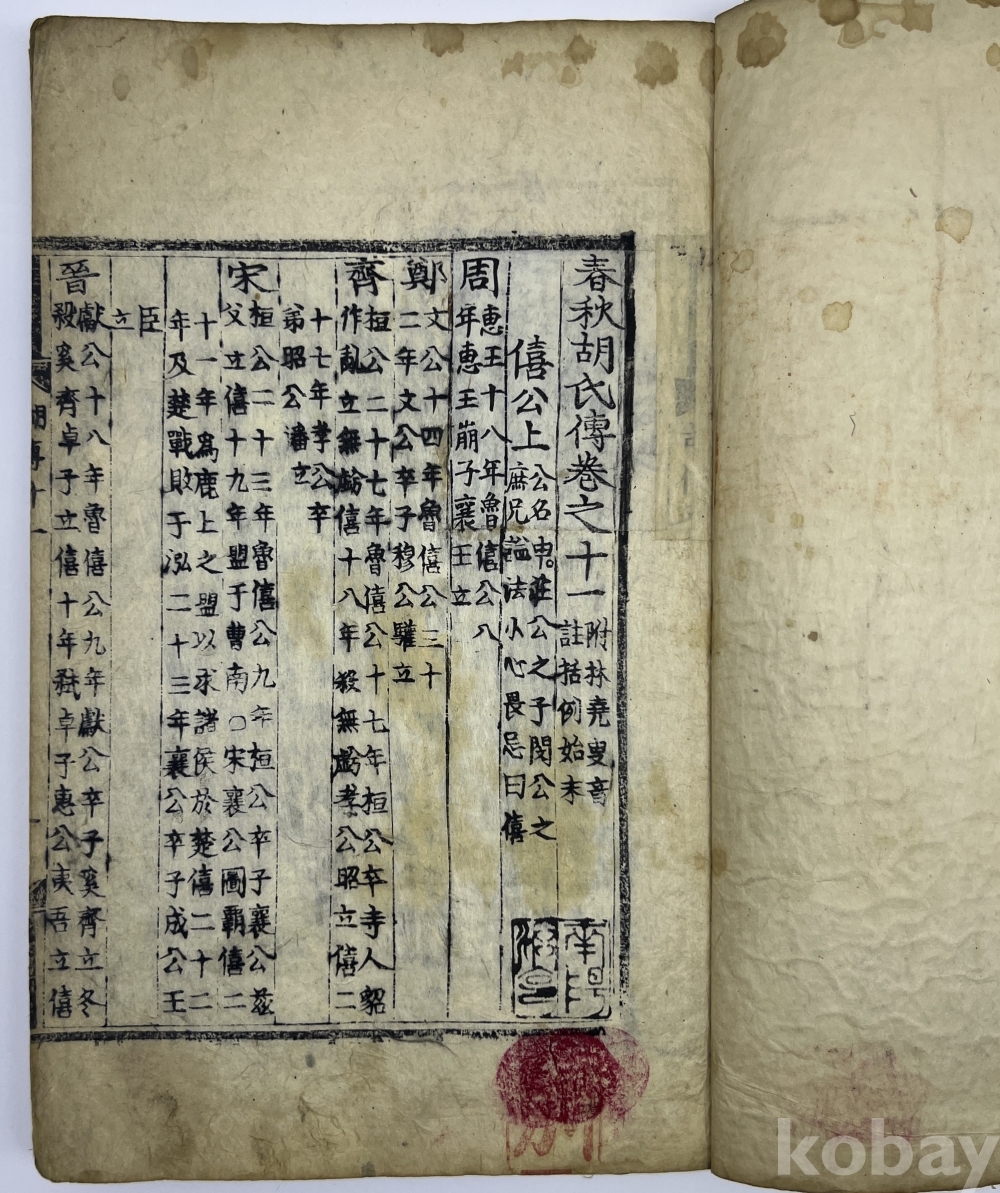 春秋胡氏傳卷之十一
附林堯叟音
註括例始末
僖公上
公名申莊公之子閔公之
庶兄謚法小心畏忌曰僖
周
惠王十八年魯僖公八
年惠王崩子襄王立
鄭
文公十四年魯僖公三十
二年文公卒子穆公驩立
齊
桓公二十七年魯僖公十七年桓公卒寺人貂
作亂立無虧僖十八年殺無虧孝公昭立僖二
十七年孝公卒
弟昭公潘立
宋
桓公二十三年魯僖公九年桓公卒子襄公茲
父立僖十九年盟于曹南○宋襄公圖覇僖二
十一年爲鹿上之盟以求諸侯於楚僖二十二
年及楚戰敗于泓二十三年襄公卒子成公王
臣
立
晉
獻公十八年魯僖公九年獻公卒子奚齊立冬
殺奚齊卓子立僖十年弑卓子惠公夷吾立僖
胡傳十一
南陽
kobay